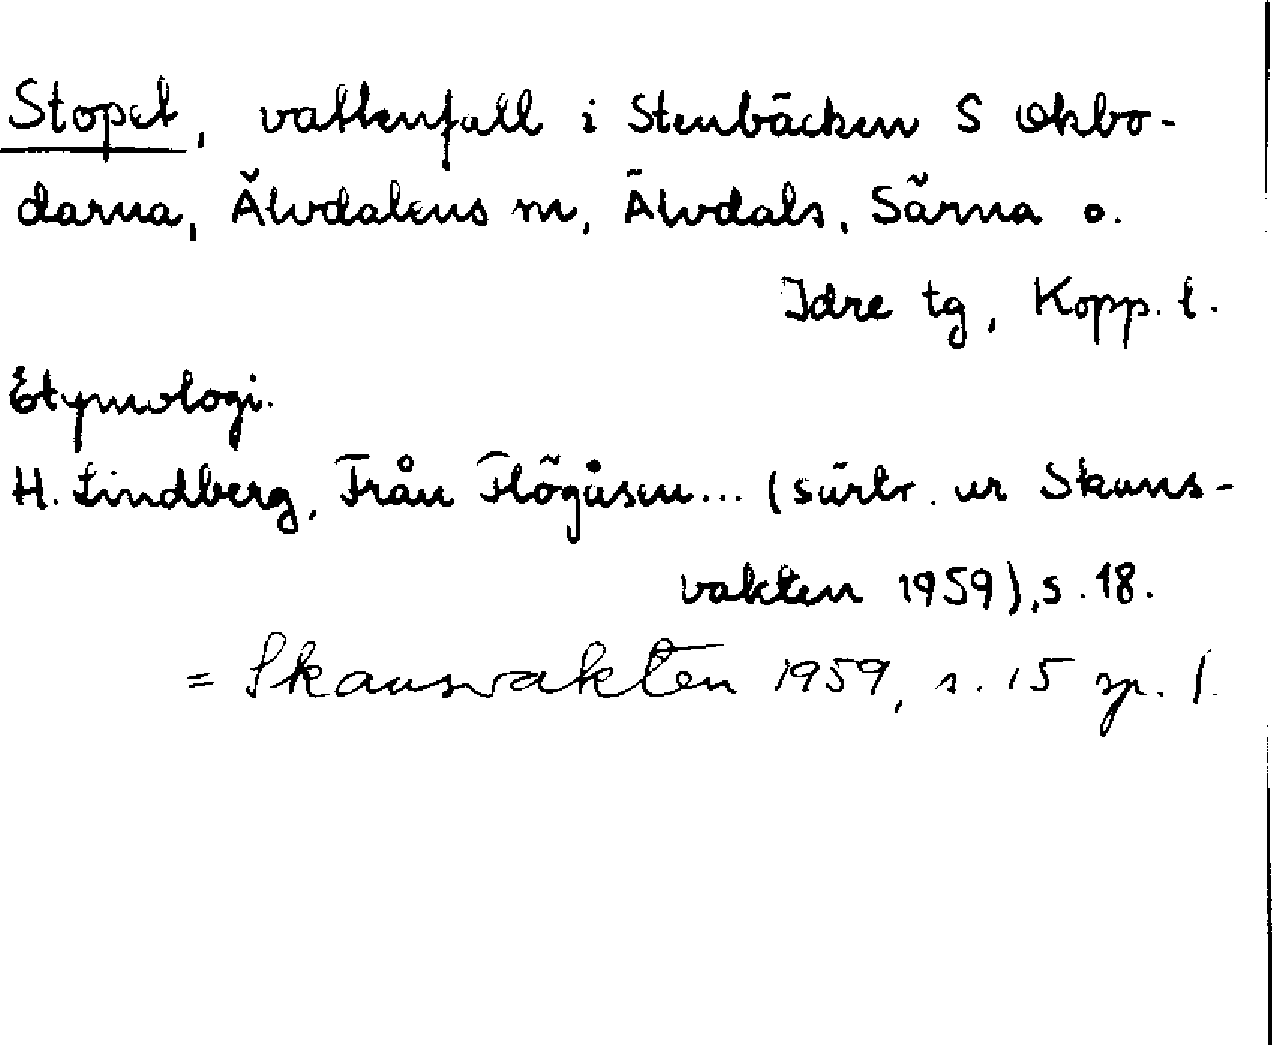 Stopet, vattenfall i Stenbäcken S Okbo-
darna, Älvdalens sn, Älvdals, Särna o.
Idre tg, Kopp. l.
Etymologi.
H. Lindberg, Från Flögåsen... (särtr. ur Skans-
vakten 1959), s. 18.
= Skansvakten 1959, s. 15 sp. 1.